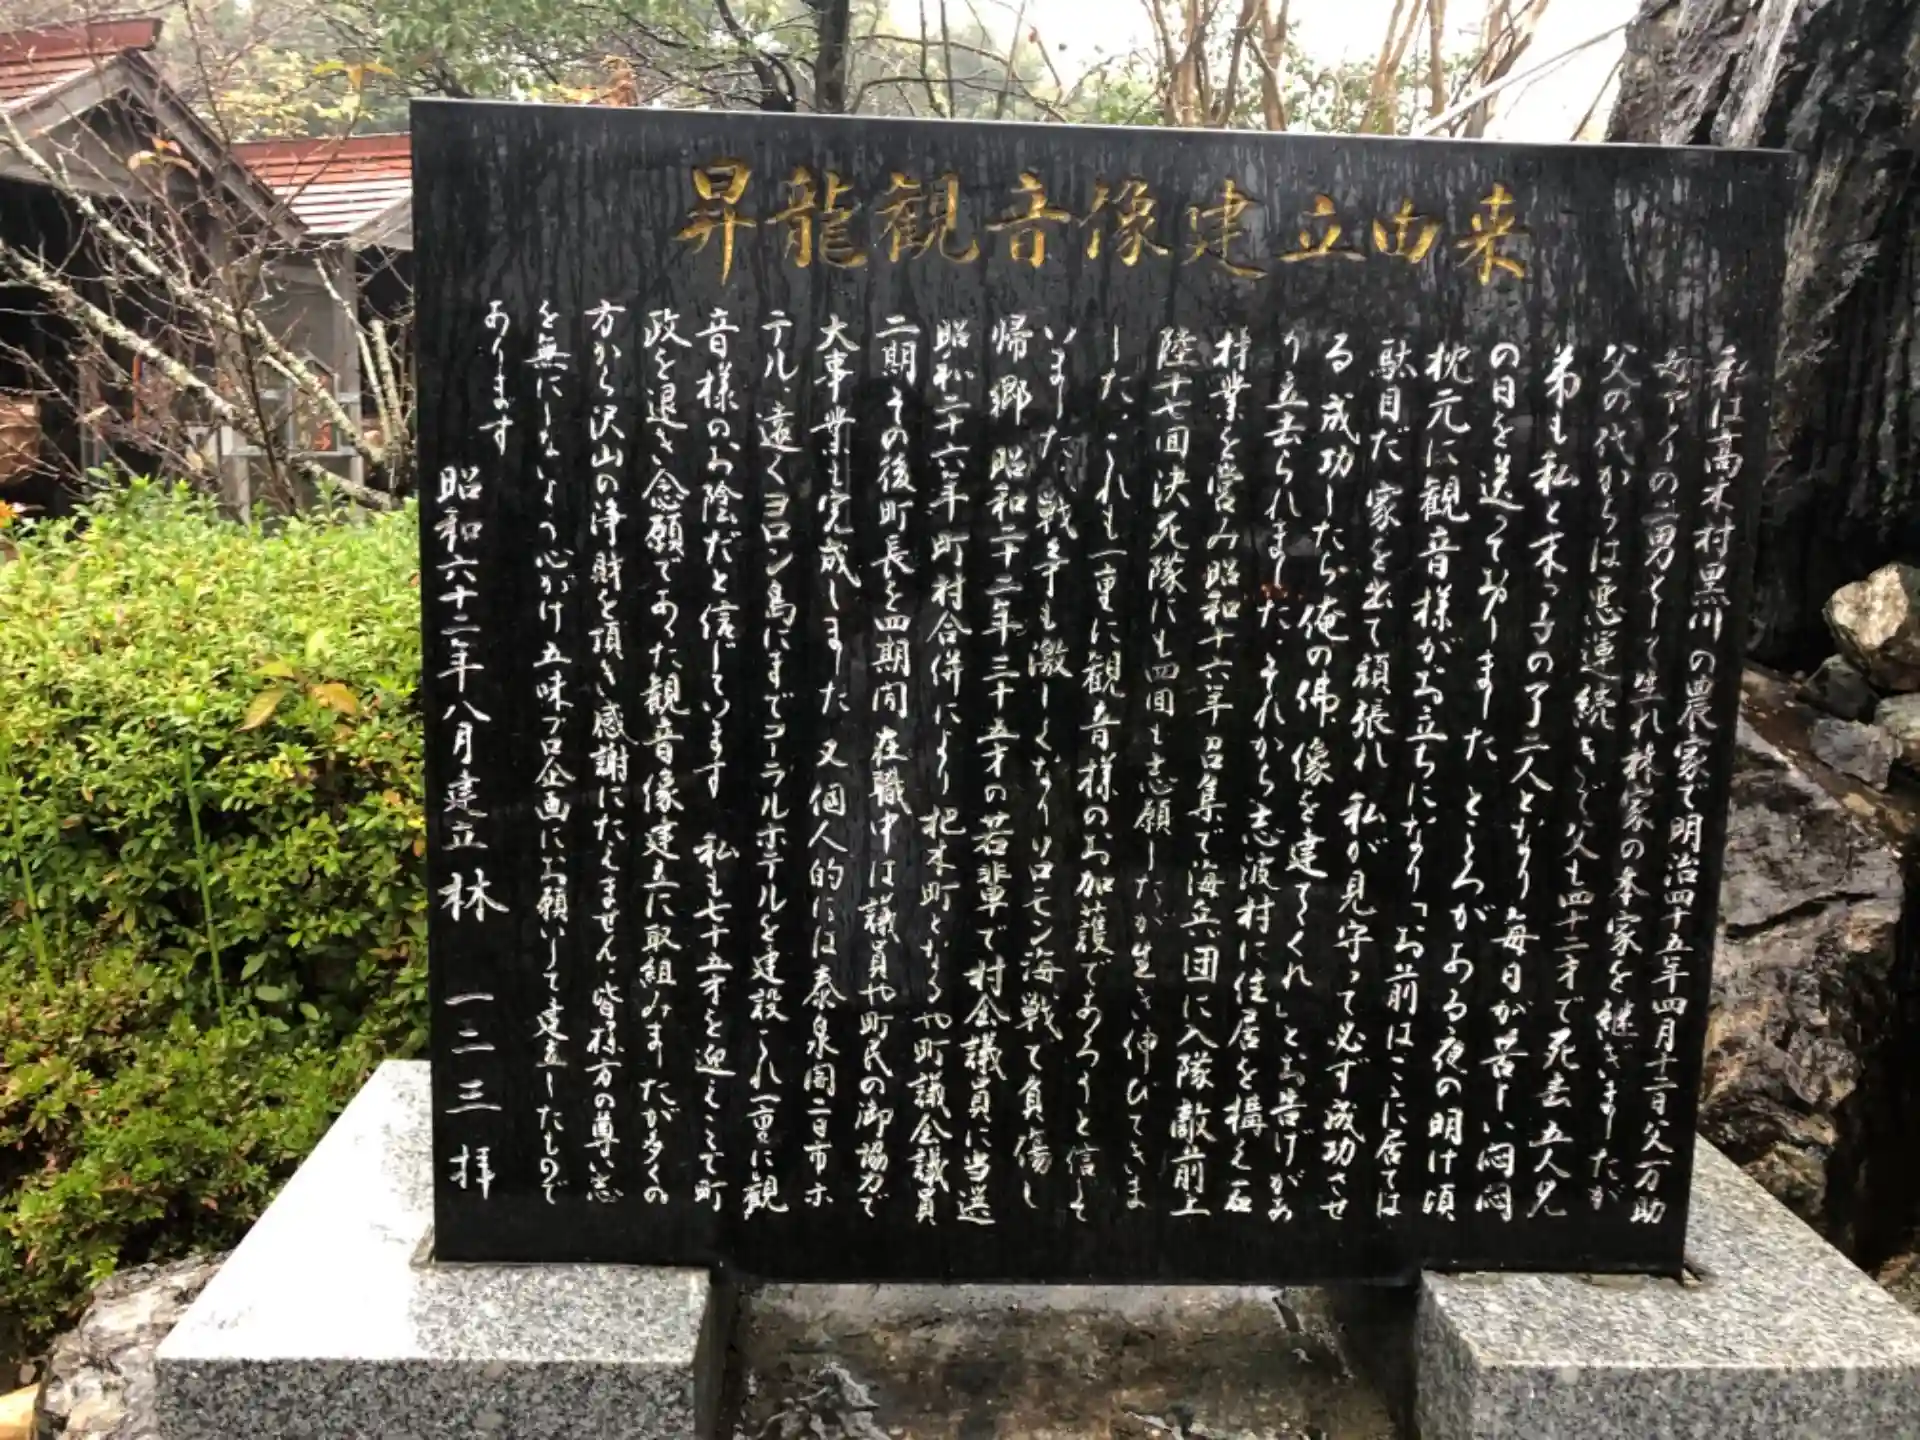 昇龍観音像建立由来
私は高木村黒川の農家で明治四十五年四月十二日父万助
母アイの二男として生れ林家の本家を継ぎましたが
父の代からは悪運続きで父も四十二才で死去五人兄
弟も私と末っ子の了二人となり毎日が苦しい悶悶
の日を送っておりました ところがある夜の明け頃
枕元に観音様がお立ちになり「お前はここに居ては
駄目だ 家を出て頑張れ 私が見守って必ず成功させ
る 成功したら俺の佛像を建てくれ」とお告げがあ
り立去られました.それから志波村に住居を構え石
材業を営み昭和十六年召集で海兵団に入隊敵前上
陸十七回決死隊にも四回も志願したが生き伸びてきま
した.これも一重に観音様のお加護であろうと信じて
いました.戦争も激しくなりソロモン海戦て負傷し
帰郷 昭和二十二年三十五才の若輩で村会議員に当選
昭和二十六年町村合併により 杷木町となるや町議会議員
二期その後町長を四期間在職中は議員や町民の御協力で
大事業も完成しました 又個人的には泰泉閣二日市ホ
テル.遠くヨロン島にまでコーラルホテルを建設これ一重に観
音様のお陰だと信じています 私も七十五才を迎えここで町
政を退き念願であった観音像建立に取組みましたが多くの
方から沢山の浄財を頂き感謝にたえません.皆様方の尊い志
を無にしないよう心がけ五味プロ企画にお願いして建立したもので
あります
昭和六十二年八月建立 林 一二三 拝